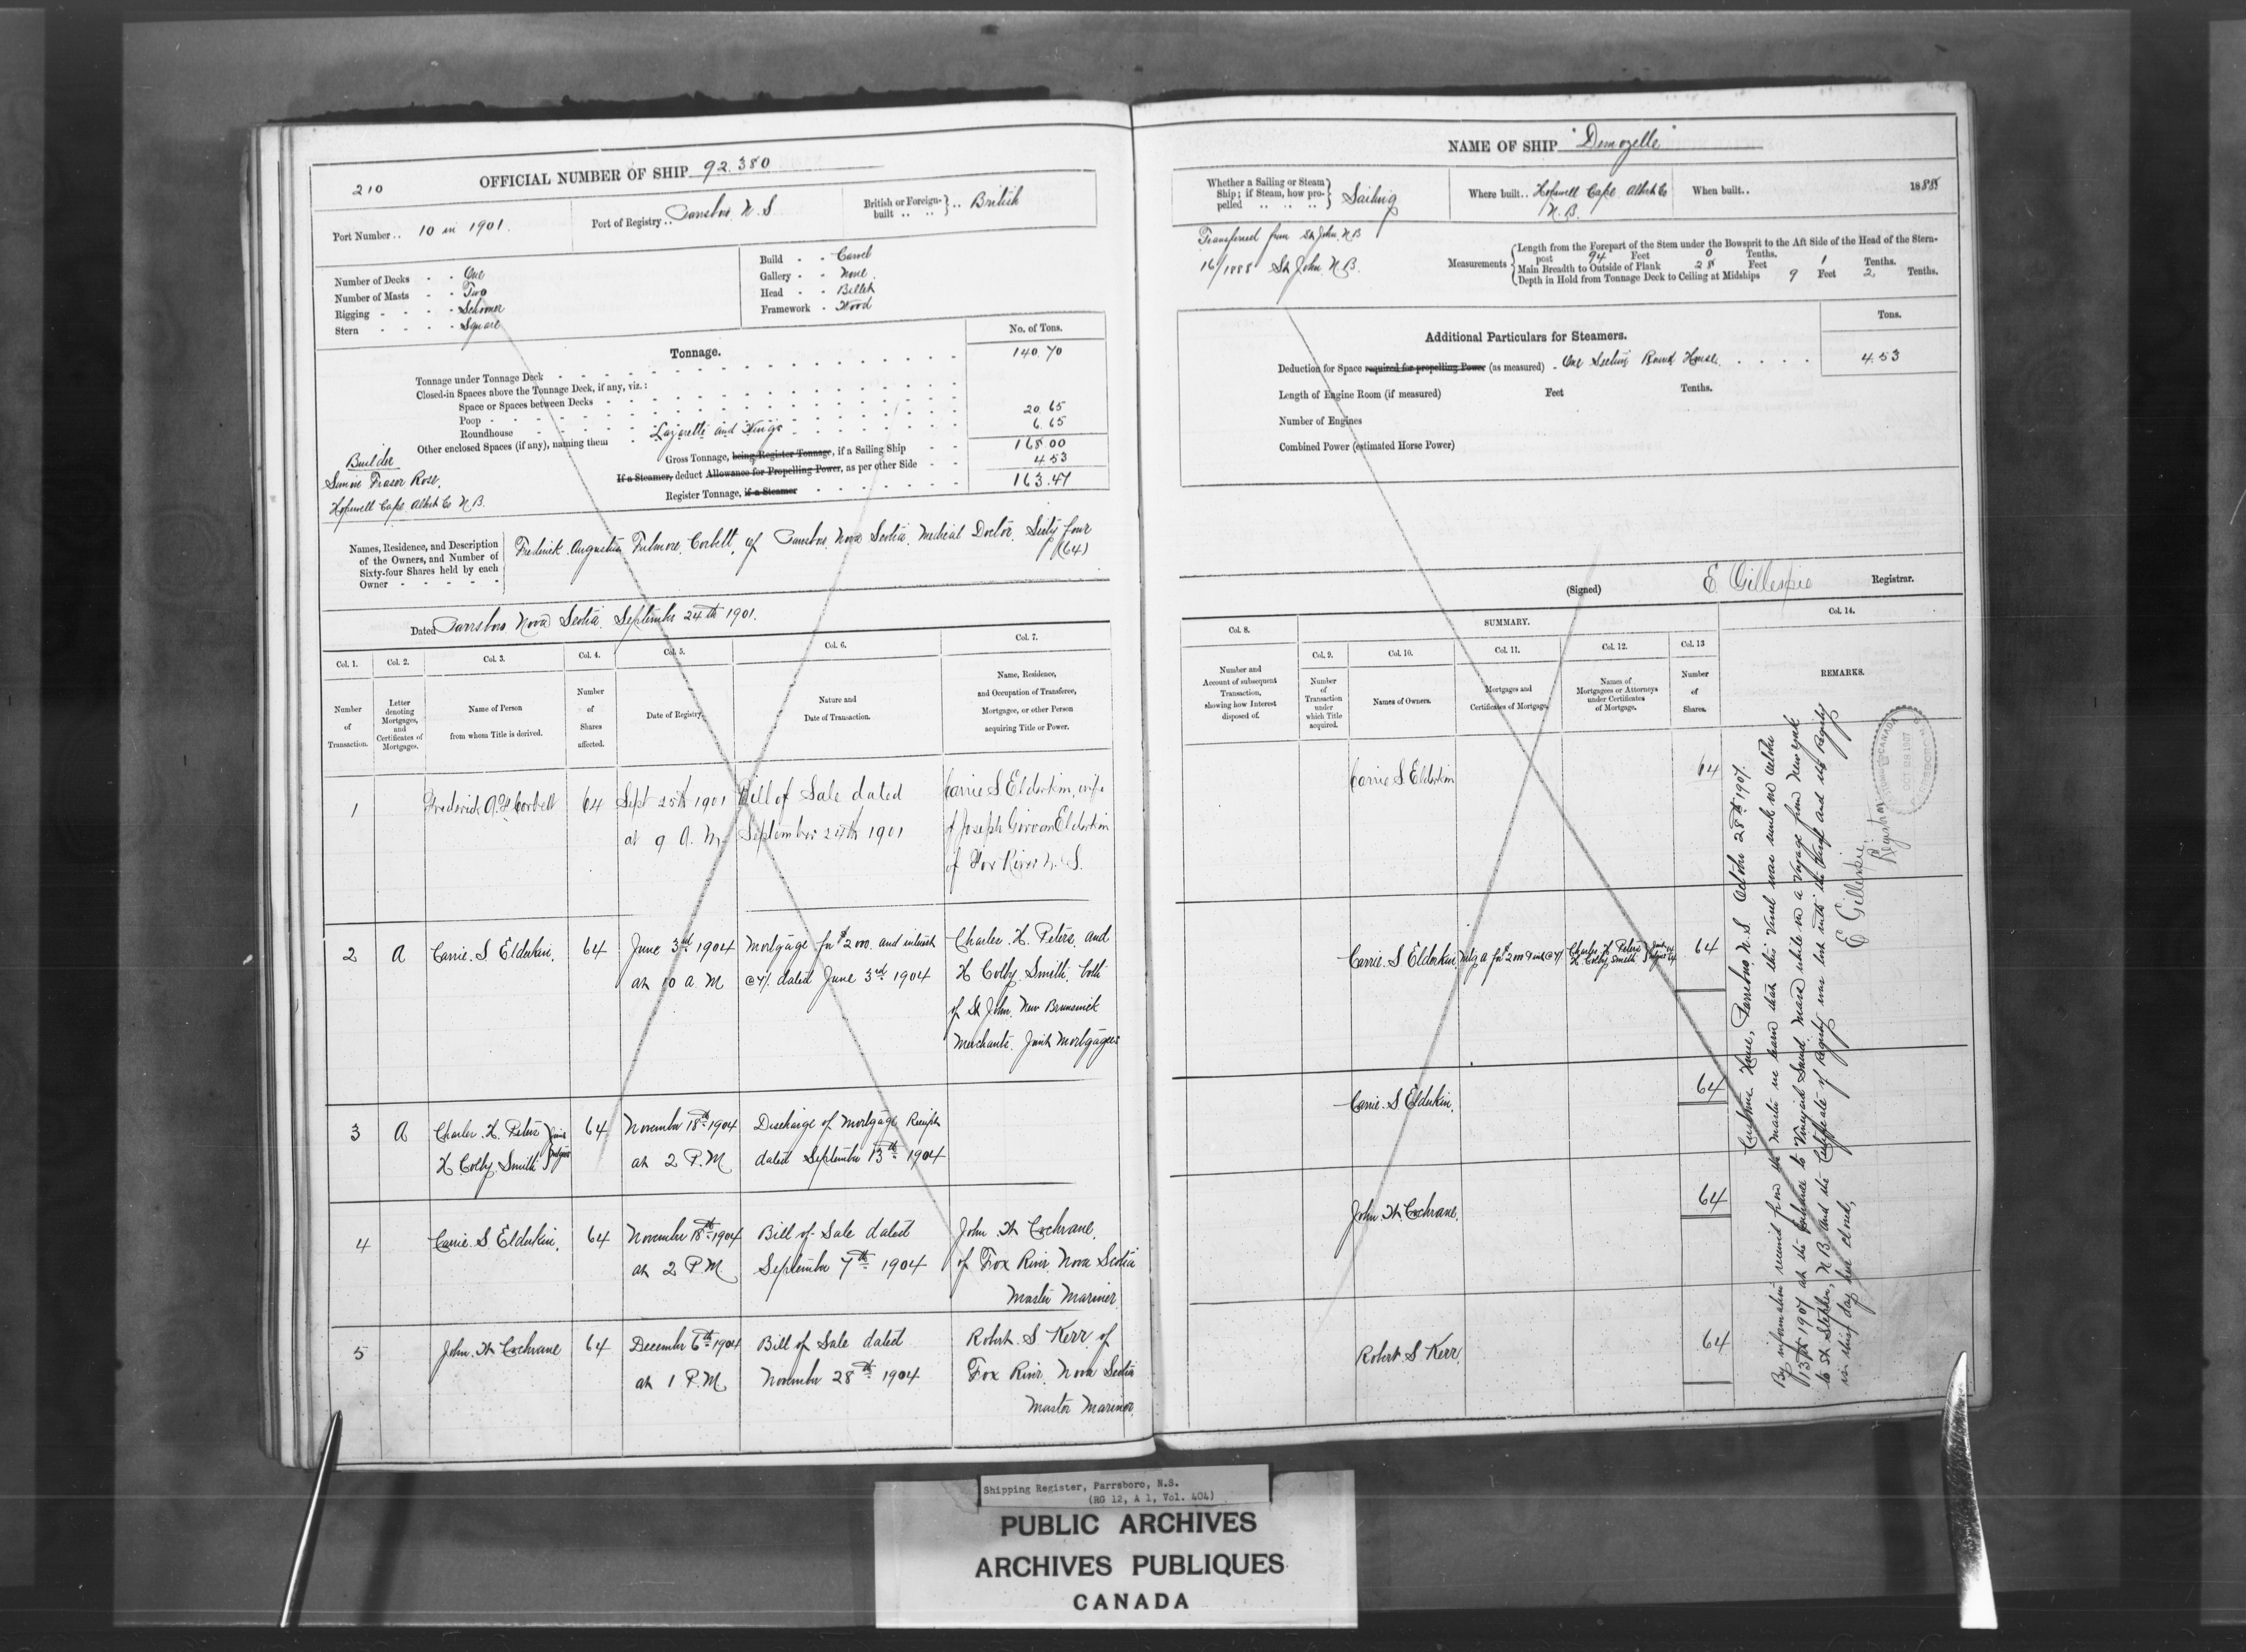 210
OFFICIAL NUMBER OF SHIP 92.380
Port Number .. 10 in 1901.
Port of Registry .. Parrsboro N.S
British or Foreign-built .. .. } .. British
Number of Decks - - One
Number of Masts - - Two
Rigging - - - - Schooner
Stern - - - - Square
Build - - Carvel
Gallery - - None
Head - - Billet
Framework - Wood
Tonnage.
No. of Tons.
Tonnage under Tonnage Deck 140.70
Closed-in Spaces above the Tonnage Deck, if any, viz.:
Space or Spaces between Decks
Poop 20.65
Roundhouse 6.65
Other enclosed Spaces (if any), naming them Lazarette and Wings
Gross Tonnage, being Register Tonnage, if a Sailing Ship 168.00
If a Steamer, deduct Allowance for Propelling Power, as per other Side 4.53
Register Tonnage, if a Steamer 163.47
Builder
Fraser Rose,
Hopewell Cape Albert Co N.B.
Names, Residence, and Description of the Owners, and Number of Sixty-four Shares held by each Owner
Frederick Augustus Fulmore Corbett, of Parrsboro Nova Scotia, Medical Doctor, Sixty four
(64)
Dated Parrsboro Nova Scotia September 24th 1901.
Col. 1. Col. 2. Col. 3. Col. 4. Col. 5. Col. 6. Col. 7.
Number of Transaction.
Letter denoting Mortgages, and Certificates of Mortgages.
Name of Person from whom Title is derived.
Number of Shares affected.
Date of Registry.
Nature and Date of Transaction.
Name, Residence, and Occupation of Transferee, Mortgagee, or other Person acquiring Title or Power.
1 Frederick A. F. Corbett 64 Sept 25th 1901 Bill of Sale dated Carrie S Elderkin, wife
at 9 A. M. September 24th 1901 of Joseph Elderkin
of Fox River N. S.
2 A Carrie S Elderkin, 64 June 3rd 1904 Mortgage for $2000. and interest Charles H. Peters, and
at 10 A. M @ 7% dated June 3rd 1904 H Colby Smith, both
of St John New Brunswick
Merchants. Joint Mortgagees
3 A Charles H. Peters } Joint 64 November 18th 1904 Discharge of Mortgage Receipt
H Colby Smith } Mtgees at 2 P. M dated September 13th 1904
4 Carrie S Elderkin, 64 November 18th 1904 Bill of Sale dated John W Cochrane,
at 2 P M. September 7th 1904 of Fox River, Nova Scotia
Master Mariner
5 John W Cochrane 64 December 6th 1904 Bill of Sale dated Robert S Kerr, of
at 1 P. M November 28th 1904 Fox River, Nova Scotia
Master Mariner
NAME OF SHIP "Demozelle"
Whether a Sailing or Steam Ship; if Steam, how propelled } Sailing
Where built .. Hopewell Cape Albert Co
N. B.
When built .. 1888
Transferred from St John N.B
16/1888 St John N.B.
Measurements
Length from the Forepart of the Stem under the Bowsprit to the Aft Side of the Head of the Stern-post 94 Feet 0 Tenths.
Main Breadth to Outside of Plank 28 Feet 1 Tenths.
Depth in Hold from Tonnage Deck to Ceiling at Midships 9 Feet 2 Tenths.
Additional Particulars for Steamers.
Tons.
Deduction for Space required for propelling Power (as measured) - One Section Round House 4.53
Length of Engine Room (if measured) Feet Tenths.
Number of Engines
Combined Power (estimated Horse Power)
(Signed) E Gillespie Registrar.
Col. 8. SUMMARY. Col. 14.
Col. 9. Col. 10. Col. 11. Col. 12. Col. 13
Number and Account of subsequent Transaction, showing how Interest disposed of.
Number of Transaction under which Title acquired.
Names of Owners.
Mortgages and Certificates of Mortgage.
Names of Mortgagees or Attorneys under Certificates of Mortgage.
Number of Shares.
REMARKS.
Carrie S Elderkin 64
Carrie S Elderkin, Mtg A for $2000 & int @ 7% Charles H. Peters H. Colby Smith } Joint Mtgees 64
Carrie S Elderkin, 64
John W Cochrane, 64
Robert S Kerr, 64
Customs House, Parrsboro N.S October 28th 1907.
By information received from the master we learn that this vessel was sunk on October
13th 1907 at the Entrance to Vineyard Sound Mass while on a voyage from New York
to St Stephen, N B and the Certificate of Registry was lost with the vessel and its Registry
is this day here closed,
E Gillespie
Registrar
CANADA
OCT 28 1907
Shipping Register, Parrsboro, N.S.
(RG 12, A 1, Vol. 404)
PUBLIC ARCHIVES
ARCHIVES PUBLIQUES
CANADA